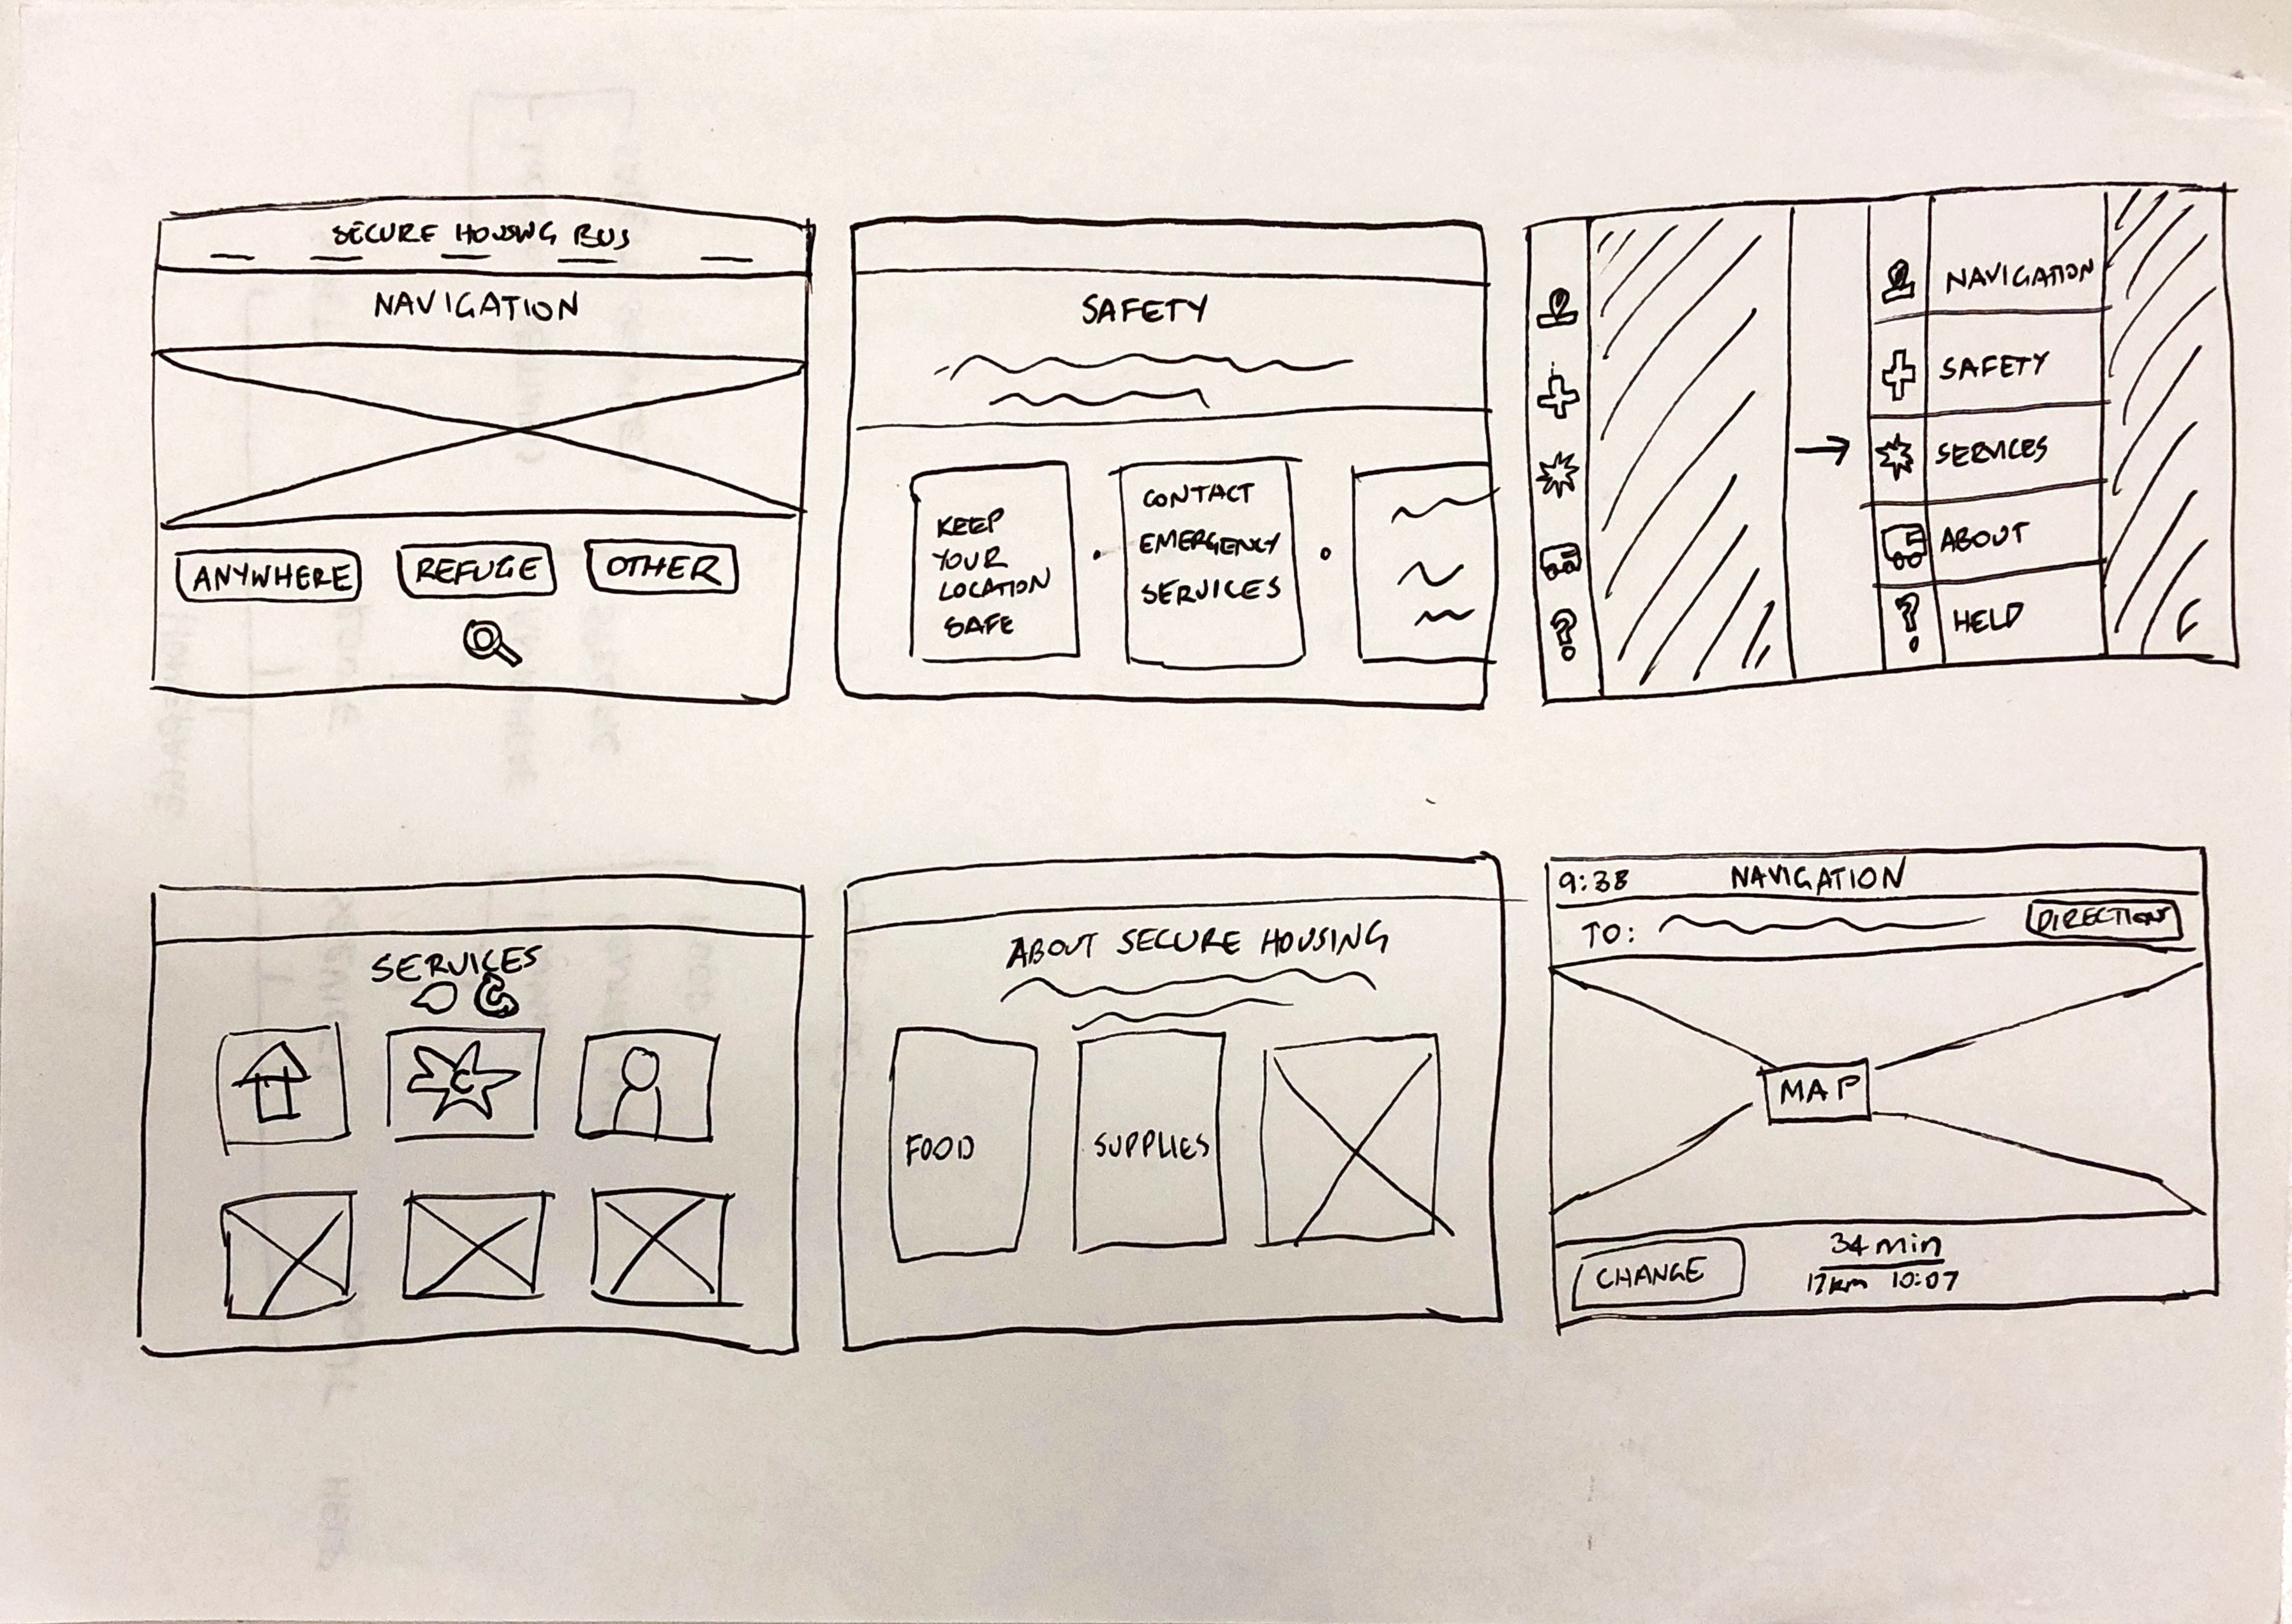 SECURE HOUSING BUS
NAVIGATION
ANYWHERE
REFUGE
OTHER
SAFETY
KEEP
YOUR
LOCATION
SAFE
CONTACT
EMERGENCY
SERVICES
NAVIGATION
SAFETY
SERVICES
ABOUT
? HELP
?
SERVICES
ABOUT SECURE HOUSING
FOOD
SUPPLIES
9:38 NAVIGATION
TO: DIRECTIONS
MAP
CHANGE
34 min
17km 10:07